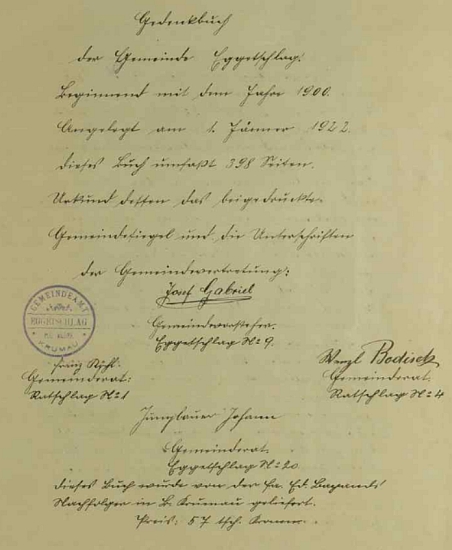 Gedenkbuch
der Gemeinde Eggetschlag.
Beginnend mit dem Jahre 1900.
Angelegt am 1. Jänner 1922.
Dieses Buch umfaßt 398 Seiten.
Urkund dessen das beigedruckte
Gemeindesiegel und die Unterschriften
der Gemeindevertretung:
Josef Gabriel
Gemeindevorsteher.
Eggetschlag No 9.
GEMEINDEAMT
EGGETSCHLAG
KRUMAU
Franz
Gemeinderat:
Ratschlag No 1
Wenzl Bodisch
Gemeinderat.
Ratschlag No 4
Jungbauer Johann
Gemeinderat.
Eggetschlag No 20.
Dieses Buch wurde von der Fa. Ed.
Nachfolger in B. Krumau geliefert.
Preis: 57 tsch. Kronen.